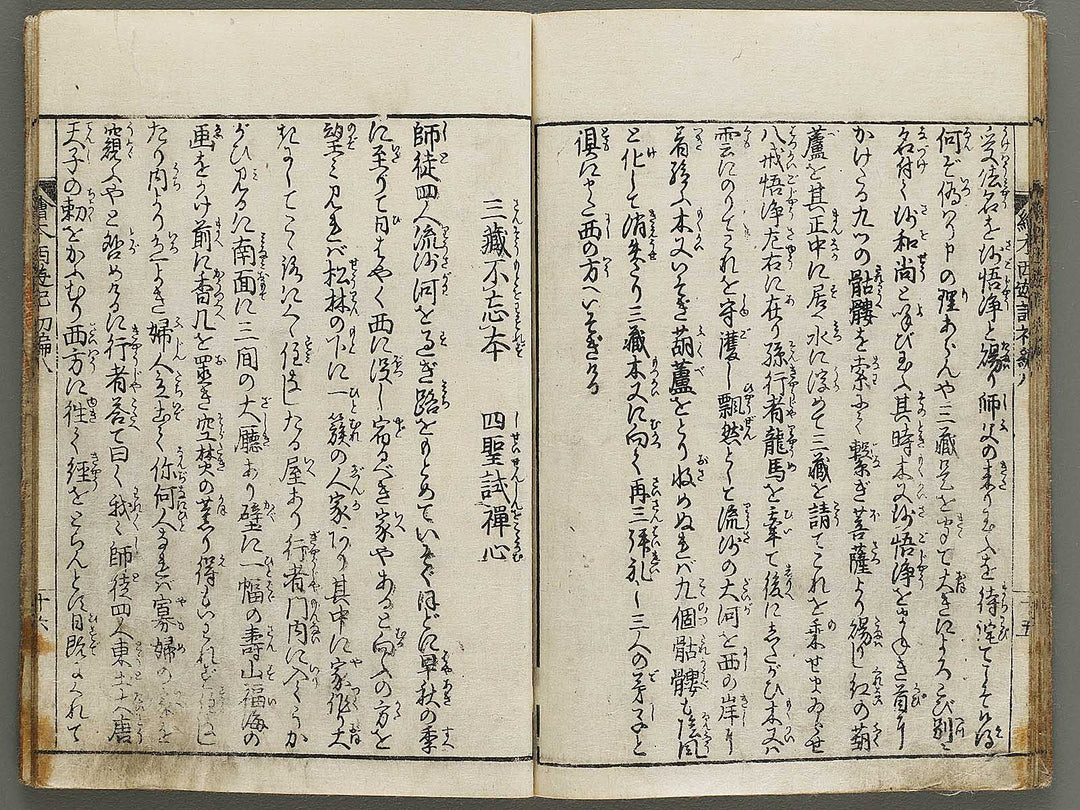 受法名を沙悟浄と賜り師父の来り玉ふを待詫てこそ候得
何ぞ偽り申の理あらんや三蔵是を聞て大きによろこび別に
名付て沙和尚と呼び玉ふ其時木叉沙悟浄をまねき首に
かけたる九つの骷髏を索にて繋ぎ菩薩より賜りし紅の葫
蘆を其正中に居へ水に浮めて三藏を請てこれを乗せまゐらせ
八戒悟浄左右に在り孫行者龍馬を牽て後にしたがひ木叉ハ
雲にのりてこれを守護し飄然として流沙の大河を西の岸に
着給ふ木叉いそぎ葫蘆をとり收めぬれバ九個の骷髏も陰風
と化して消失たり三蔵木叉に向て再三拜礼し三人の弟子と
俱にまた西の方へいそぎける
繪本西遊記初編八
十五
三藏不忘本 四聖試禪心
師徒四人流沙河を過ぎ路をもとめていそぐほどに早秋の季
に至りて日もはやく西に没し宿るべき家やあると向ふの方を
望ミ見れバ松林の下に一簇の人家あり其中に家作り大
きにしてこゝろにくゝ住なしたる屋あり行者門内に入てうか
がひ見るに南面に三間の大廳あり壁に一幅の壽山福海の
画をかけ前に香几を置き空焚の薫り得もいはれず
たり内より年よき婦人立出て你何人なれバ寡婦の を
窺ふやと咎めけるに行者答て曰く我々師徒四人東土大唐
天子の勅をかふむり西方に往て經をとらんとす日既にくれて
繪本西遊記初編八
十六